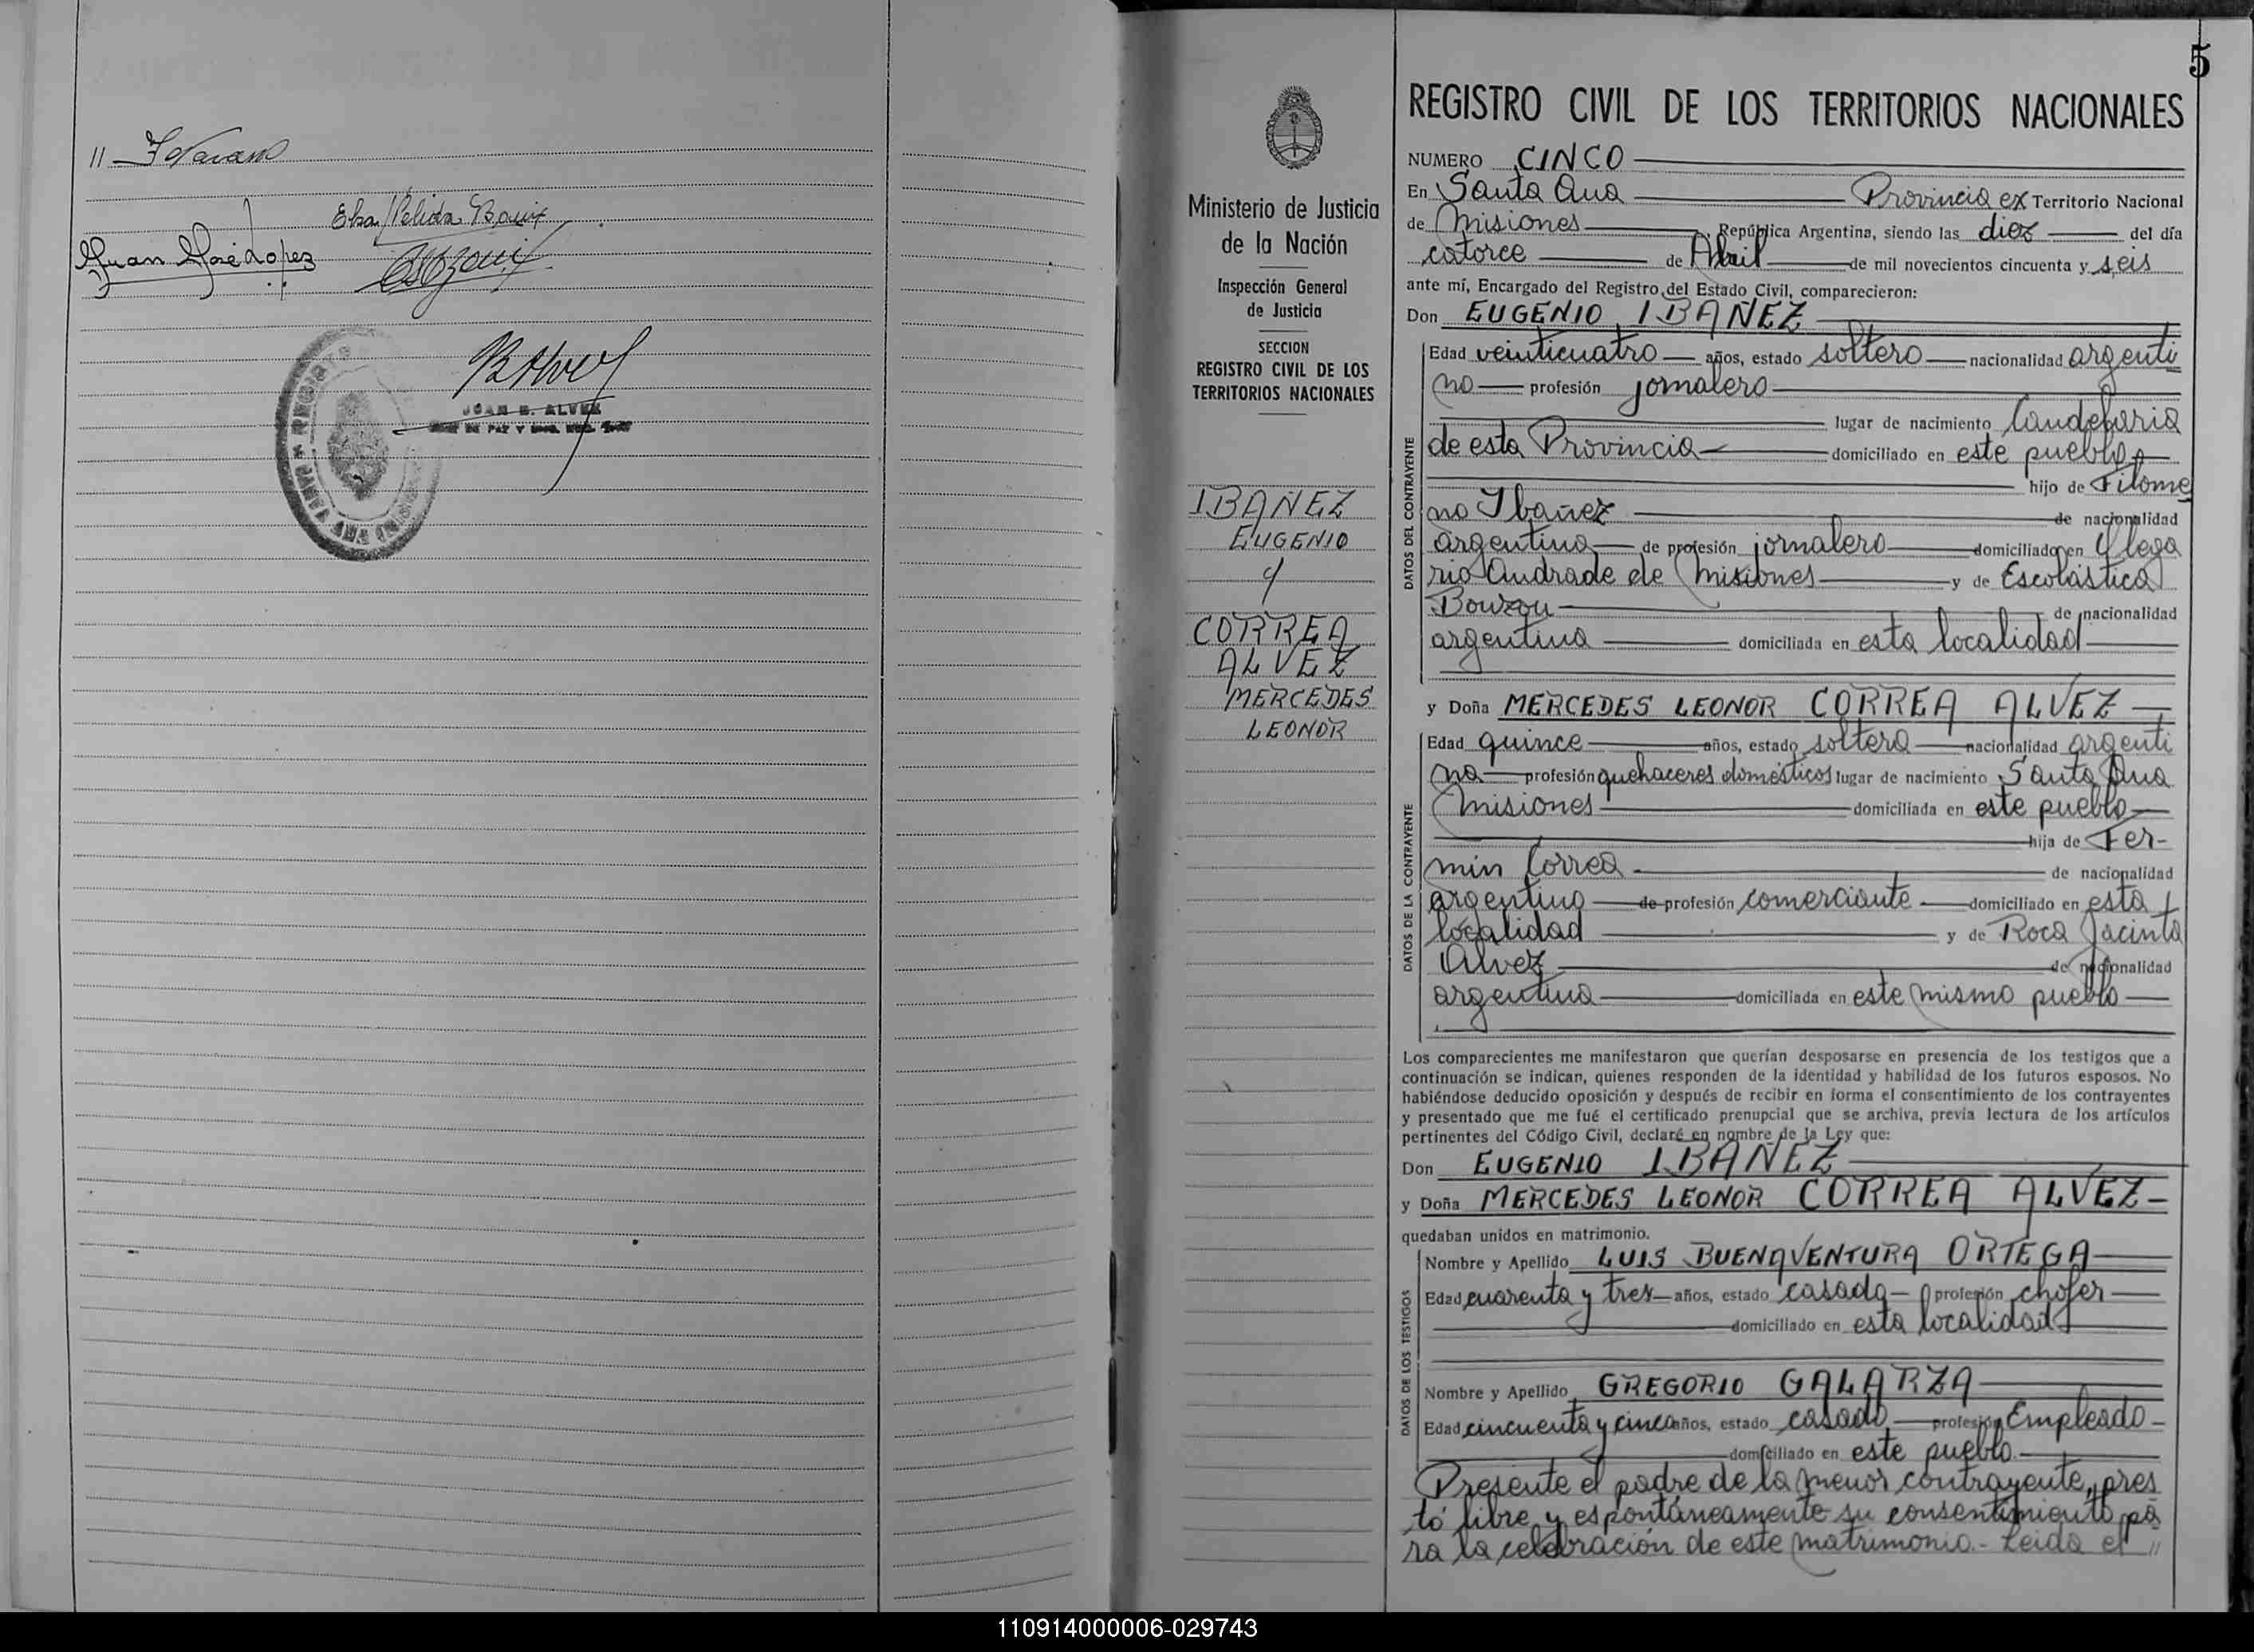 Elsa Nelida
Juan José Lopez
JUAN B. ALVEZ
JUEZ DE PAZ Y
SANTA ANA
5
Ministerio de Justicia
de la Nación
Inspección General
de Justicia
SECCION
REGISTRO CIVIL DE LOS
TERRITORIOS NACIONALES
IBAÑEZ
EUGENIO
y
CORREA
ALVEZ
MERCEDES
LEONOR
REGISTRO CIVIL DE LOS TERRITORIOS NACIONALES
NUMERO CINCO
En Santa Ana Provincia ex Territorio Nacional
de Misiones, República Argentina, siendo las diez del día
catorce de Abril de mil novecientos cincuenta y seis
ante mí, Encargado del Registro del Estado Civil, comparecieron:
Don EUGENIO IBAÑEZ
DATOS DEL CONTRAYENTE
Edad veinticuatro años, estado soltero nacionalidad argenti
no profesión jornalero
lugar de nacimiento Candelaria
de esta Provincia domiciliado en este pueblo
hijo de Filome
no Ibañez de nacionalidad
argentina de profesión jornalero domiciliado en Olega
rio Andrade de Misiones y de Escolástica
de nacionalidad
argentina domiciliada en esta localidad
y Doña MERCEDES LEONOR CORREA ALVEZ
DATOS DE LA CONTRAYENTE
Edad quince años, estado soltera nacionalidad argenti
na profesión quehaceres domésticos lugar de nacimiento Santa Ana
Misiones domiciliada en este pueblo
hija de Fer-
min Correa de nacionalidad
argentino de profesión comerciante domiciliado en esta
localidad y de Roca Jacinta
Alvez de nacionalidad
argentina domiciliada en este mismo pueblo
Los comparecientes me manifestaron que querían desposarse en presencia de los testigos que a
continuación se indican, quienes responden de la identidad y habilidad de los futuros esposos. No
habiéndose deducido oposición y después de recibir en forma el consentimiento de los contrayentes
y presentado que me fué el certificado prenupcial que se archiva, previa lectura de los artículos
pertinentes del Código Civil, declaré en nombre de la Ley que:
Don EUGENIO IBAÑEZ
y Doña MERCEDES LEONOR CORREA ALVEZ
quedaban unidos en matrimonio.
DATOS DE LOS TESTIGOS
Nombre y Apellido LUIS BUENAVENTURA ORTEGA
Edad cuarenta y tres años, estado casado profesión chofer
domiciliado en esta localidad
Nombre y Apellido GREGORIO GALARZA
Edad cincuenta y cinco años, estado casado profesión Empleado
domiciliado en este pueblo.
Presente el padre de la menor contrayente, pres
tó libre y espontáneamente su consentimiento pa
ra la celebración de este matrimonio.- Leida el //
110914000006-029743